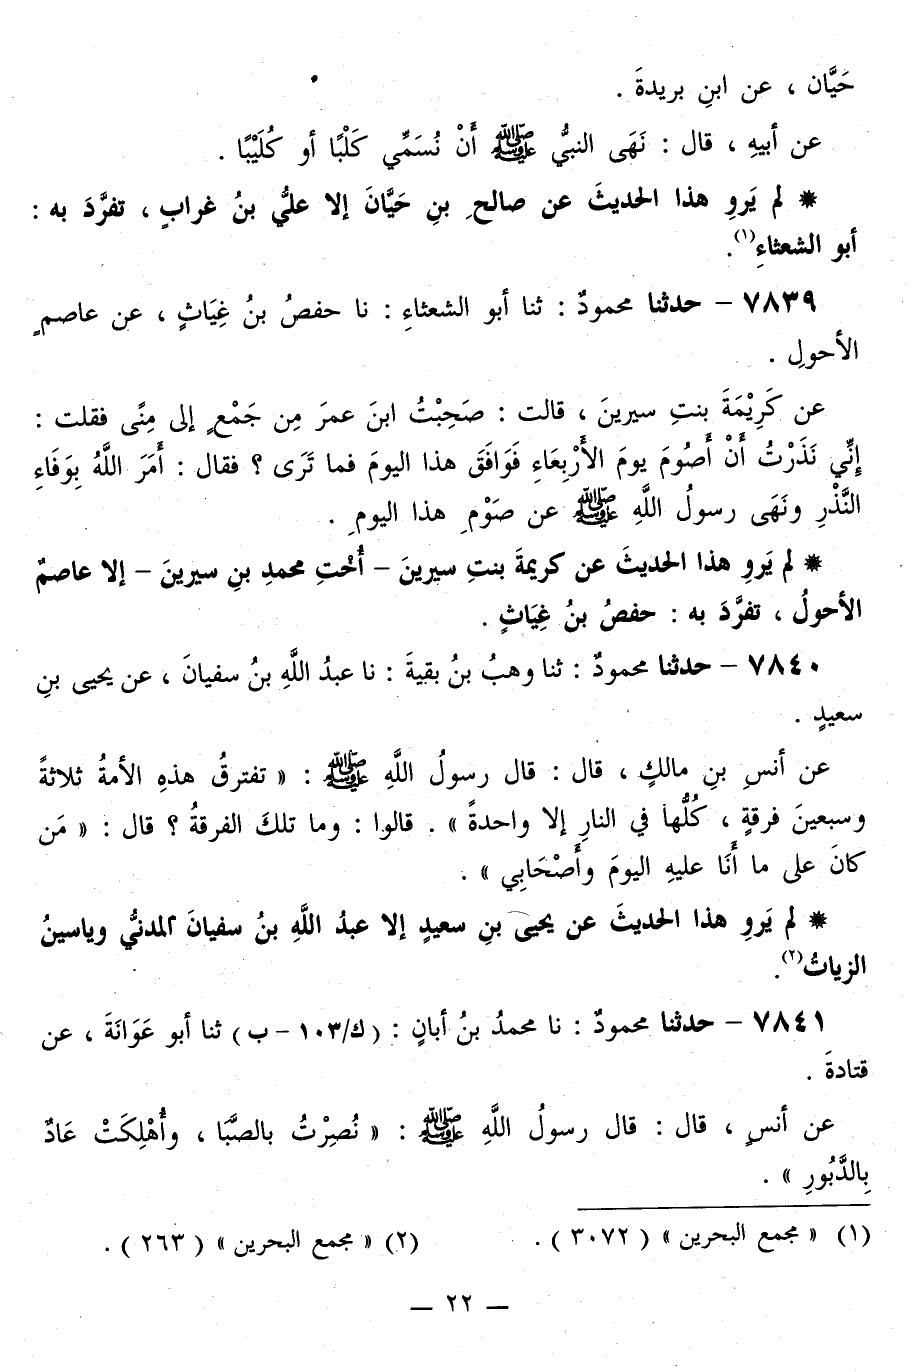 حَيَّان ، عن ابنِ بريدةَ .
عن أبيهِ ، قال : نَهَى النبيُّ ﷺ أَنْ نُسَمِّي كَلْبًا أو كُلَيْبًا .
* لم يَروِ هذا الحديثَ عن صالحِ بنِ حَيَّانَ إلا عليُّ بنُ غرابٍ ، تفرَّدَ به :
أبو الشعثاءِ(١).
٧٨٣٩ - حدثنا محمودٌ : ثنا أبو الشعثاءِ : نا حفصُ بنُ غِيَاثٍ ، عن عاصمٍ
الأحولِ .
عن كَرِيْمَةَ بنتِ سيرينَ ، قالت : صَحِبْتُ ابنَ عمرَ مِن جَمْعٍ إلى مِنًى فقلت :
إِنِّي نَذَرْتُ أَنْ أَصُومَ يومَ الأَرْبِعَاءِ فَوَافَقَ هذا اليومَ فما تَرَى ؟ فقال : أَمَرَ اللَّهُ بِوَفَاءِ
النَّذْرِ ونَهَى رسولُ اللَّهِ ﷺ عن صَوْمِ هذا اليومِ .
* لم يَروِ هذا الحديثَ عن كريمةَ بنتِ سيرينَ - أُخْتِ محمدِ بنِ سيرينَ - إلا عاصمٌ
الأحولُ ، تفرَّدَ به : حفصُ بنُ غِيَاثٍ .
٧٨٤٠ - حدثنا محمودٌ : ثنا وهبُ بنُ بقيةَ : نا عبدُ اللَّهِ بنُ سفيانَ ، عن يحيى بنِ
سعيدٍ .
عن أنسِ بنِ مالكٍ ، قال : قال رسولُ اللَّهِ ﷺ : « تفترقُ هذهِ الأمةُ ثلاثةً
وسبعينَ فرقةٍ ، كُلُّها في النارِ إلا واحدةً » . قالوا : وما تلكَ الفرقةُ ؟ قال : « مَن
كانَ على ما أَنَا عليهِ اليومَ وأَصْحَابِي » .
* لم يَروِ هذا الحديثَ عن يحيى بنِ سعيدٍ إلا عبدُ اللَّهِ بنُ سفيانَ المدنيُّ وياسينُ
الزياتُ(٢).
٧٨٤١ - حدثنا محمودٌ : نا محمدُ بنُ أبانٍ : (ك/١٠٣ - ب) ثنا أبو عَوَانَةَ ، عن
قتادةَ .
عن أنسٍ ، قال : قال رسولُ اللَّهِ ﷺ : « نُصِرْتُ بالصَّبَا ، وأُهْلِكَتْ عَادٌ
بِالدَّبُورِ » .
(١) « مجمع البحرين » ( ٣٠٧٢ ) . (٢) « مجمع البحرين » ( ٢٦٣ ) .
— ٢٢ —